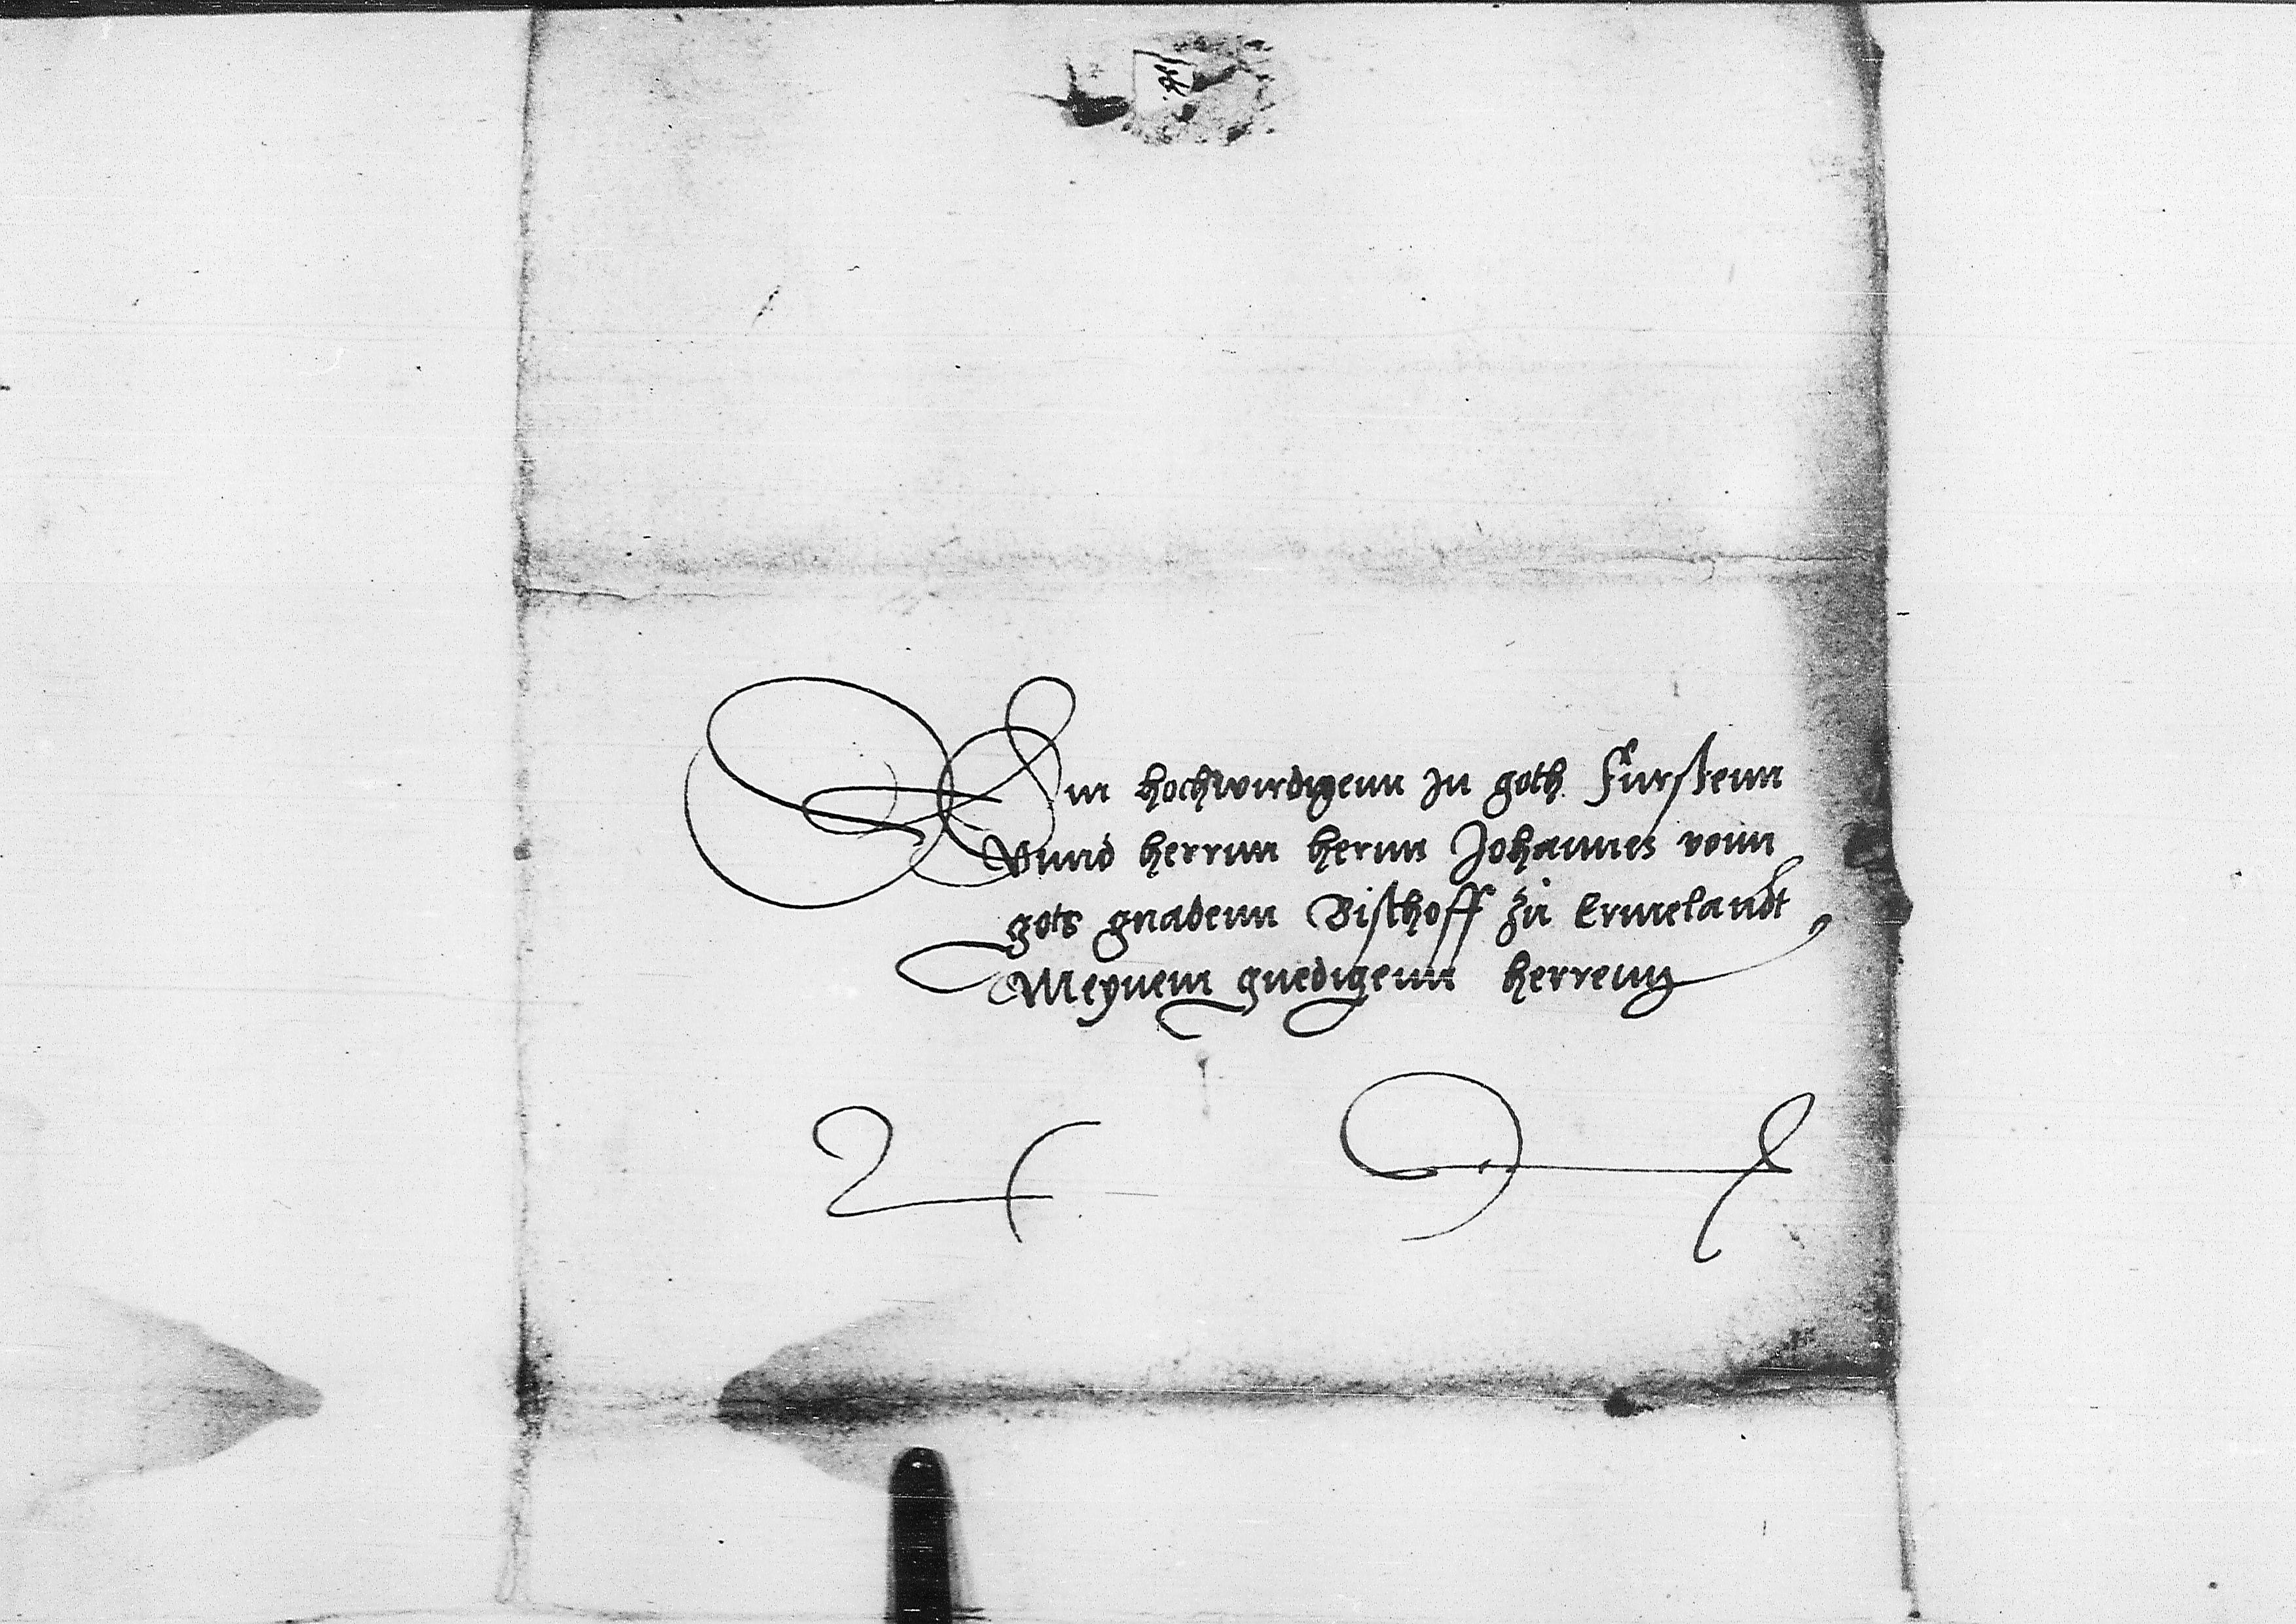 Dem hochwirdigenn In goth Furstenn
Vnnd herrnn hernn Johannes vonn
gots gnadenn Bischoff zu Ermelandt
Meynem gnedigenn herrenn